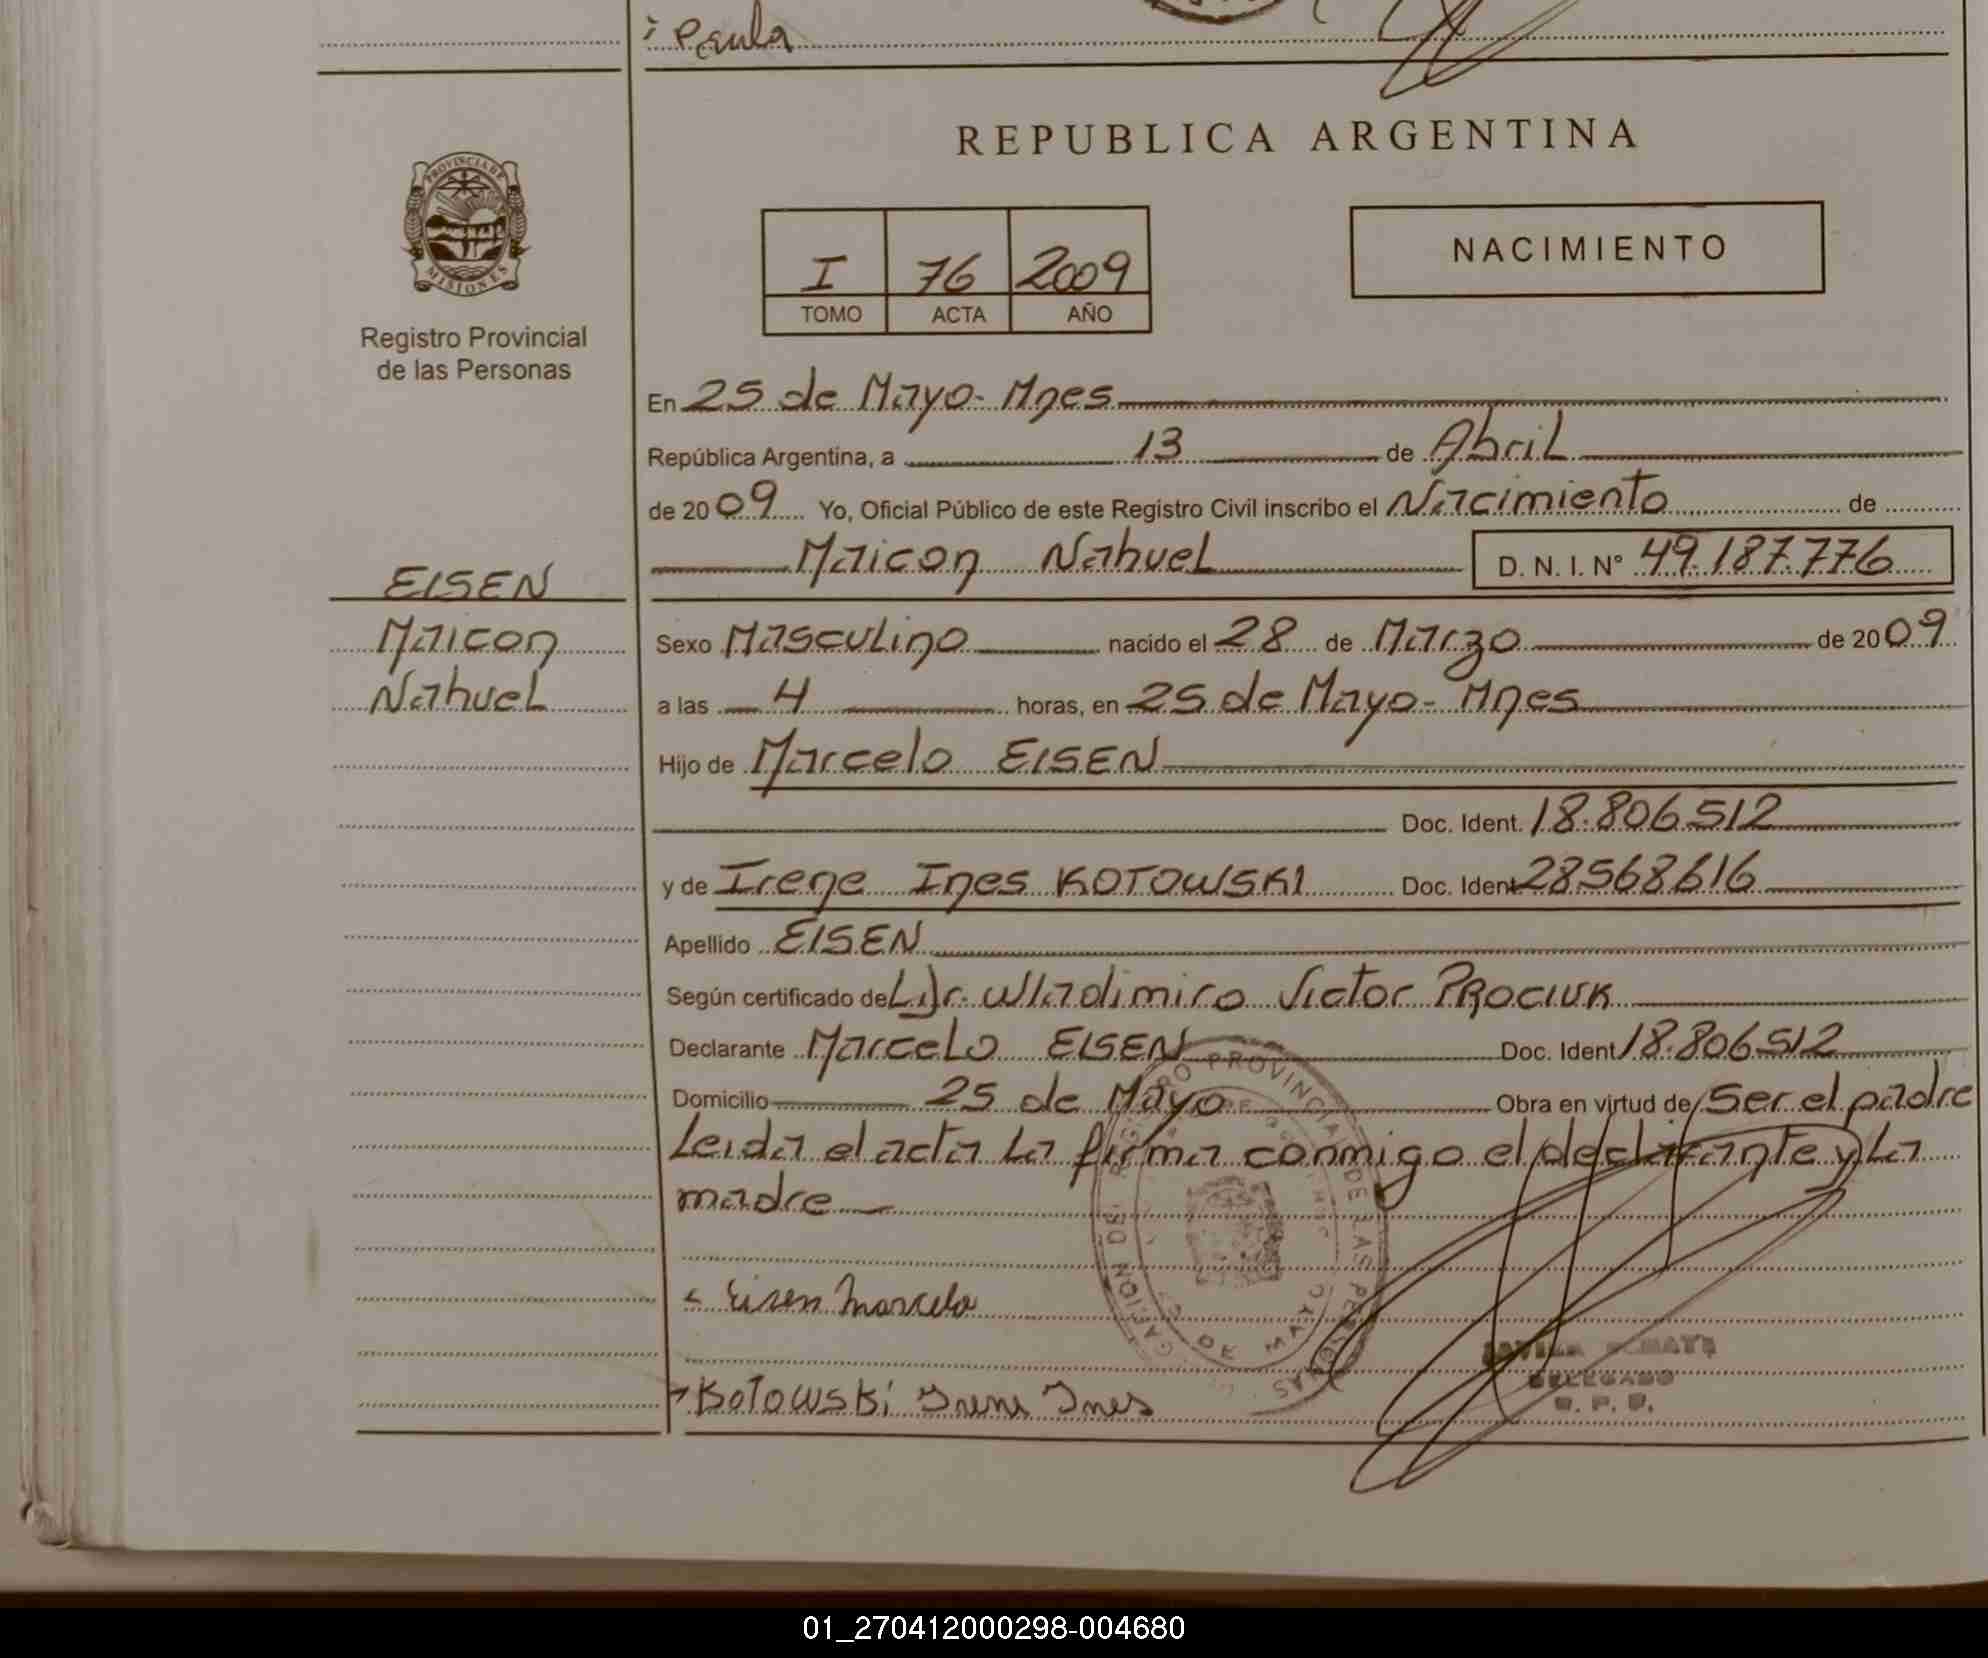 Paula
REPUBLICA ARGENTINA
PROVINCIA DE
MISIONES
Registro Provincial
de las Personas
I 76 2009
TOMO ACTA AÑO
NACIMIENTO
En 25 de Mayo - Mnes
República Argentina, a 13 de Abril
de 2009 Yo, Oficial Público de este Registro Civil inscribo el Nacimiento de
Maicon Nahuel D. N. I. N° 49.187.776
EISEN
Maicon
Nahuel
Sexo Masculino nacido el 28 de Marzo de 2009
a las 4 horas, en 25 de Mayo - Mnes
Hijo de Marcelo EISEN
Doc. Ident. 18.806.512
y de Irene Ines KOTOWSKI Doc. Ident 28568616
Apellido EISEN
Según certificado de Wladimiro Victor PROCIUK
Declarante Marcelo EISEN Doc. Ident 18.806512
Domicilio 25 de Mayo Obra en virtud de Ser el padre
Leida el acta la firma conmigo el declarante y La
madre
Eisen Marcelo
Kotowski Irene Ines
DELEGADO
01_270412000298-004680